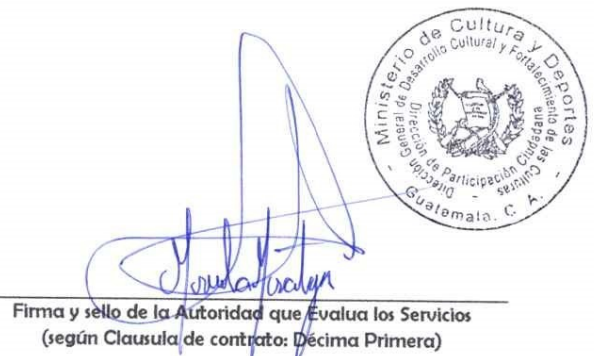 Ministerio de Cultura y Deportes
Dirección General de Desarrollo Cultural y Fortalecimiento de las Culturas
Dirección de Participación Ciudadana
- Guatemala, C. A. -
Firma y sello de la Autoridad que Evalua los Servicios
(según Clausula de contrato: Décima Primera)